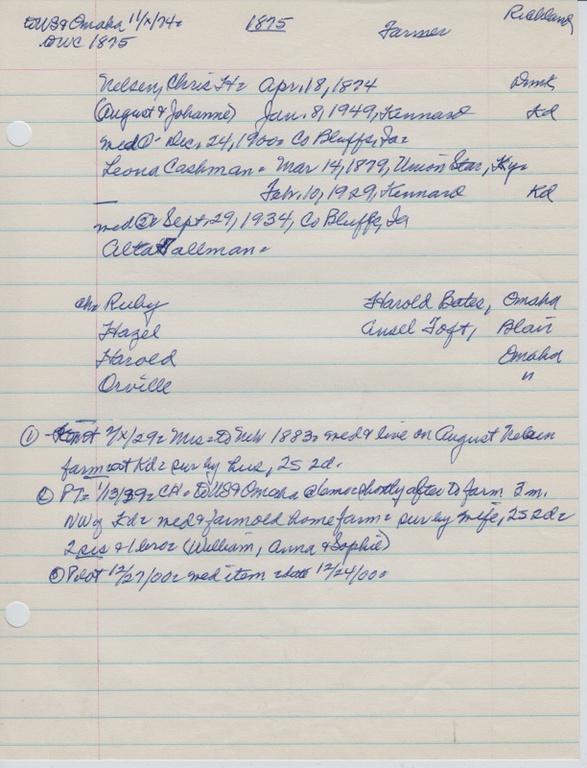 to US & Omaha 11/x/74= 1875 Farmer Richland
DWC 1875
Nelsen, Chris H= Apr. 18, 1874 Dnmk
(August & Johanne) Jan. 8, 1949, Kennard Kd
med ①- Dec. 24, 1900= Co Bluffs, Ia=
Leona Cashman= Mar 14, 1879, Union Star, Ky=
Feb. 10, 1929, Kennard Kd
med ②= Sept. 29, 1934, Co Bluffs, Ia
Alta Tallman=
ch= Ruby Harold Bates, Omaha
Hazel Ansel Toft, Blair
Harold Omaha
Orville "
① 2/x/29= Mrs= to Neb 1883= med & live on August Nelsen
farm Kd= sur by hus, 2S 2d.
② PT= 1/13/49= CH= to US & Omaha shortly after to farm 3 m.
NW of Kd= med & farm old home farm= sur by wife, 2S 2d=
2 sis & 1 bro= (William, Anna & Sophie)
③ Pilot 12/27/00= med item date 12/24/00=